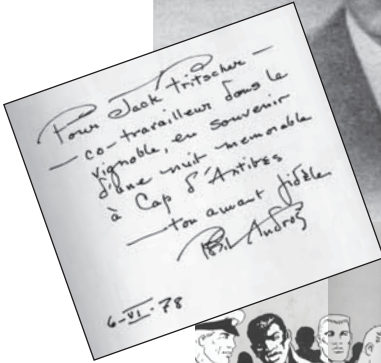 Pour Jack Fritscher —
— co-travailleur dans le
vignoble, en souvenir
d'une nuit memorable
à Cap d'Antibes
— ton amant fidèle
Phil Andros
6-VI-78